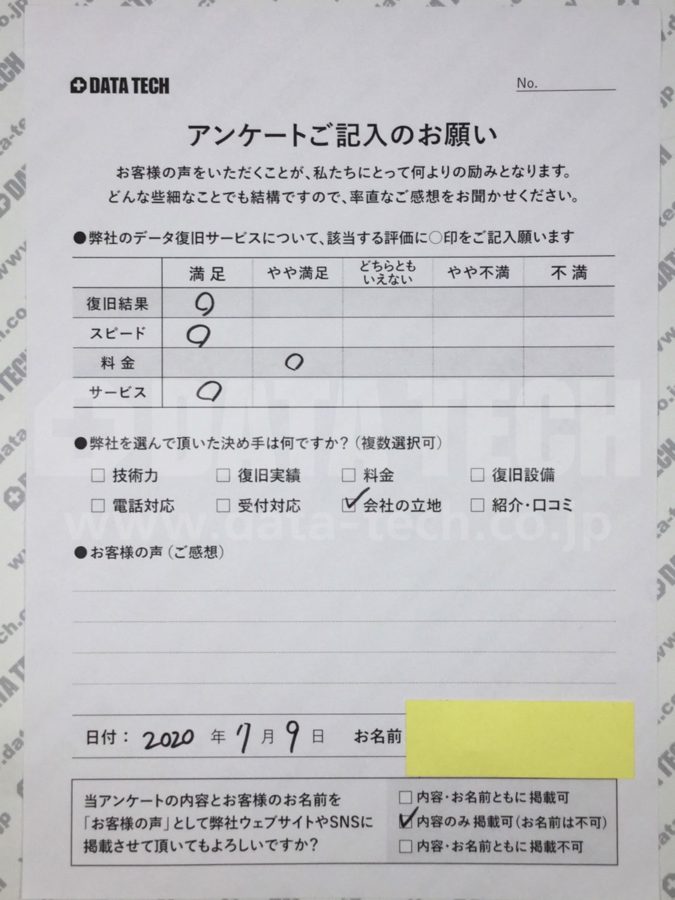 DATA TECH
No.
アンケートご記入のお願い
お客様の声をいただくことが、私たちにとって何よりの励みとなります。
どんな些細なことでも結構ですので、率直なご感想をお聞かせください。
●弊社のデータ復旧サービスについて、該当する評価に○印をご記入願います
満足 やや満足 どちらともいえない やや不満 不満
復旧結果 ○
スピード ○
料金 ○
サービス ○
DATA TECH
●弊社を選んで頂いた決め手は何ですか？（複数選択可）
□ 技術力 □ 復旧実績 □ 料金 □ 復旧設備
□ 電話対応 □ 受付対応 ☑ 会社の立地 □ 紹介・口コミ
www.data-tech.co.jp
●お客様の声（ご感想）
日付： 2020 年 7 月 9 日 お名前
当アンケートの内容とお客様のお名前を
「お客様の声」として弊社ウェブサイトやSNSに
掲載させて頂いてもよろしいですか？
□ 内容・お名前ともに掲載可
☑ 内容のみ掲載可（お名前は不可）
□ 内容・お名前ともに掲載不可